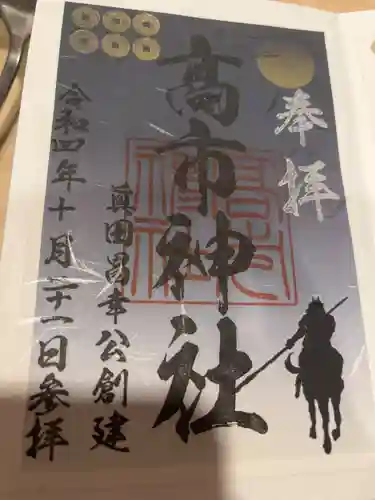 奉拝
高市神社
真田昌幸公創建
令和四年十月二十一日参拝